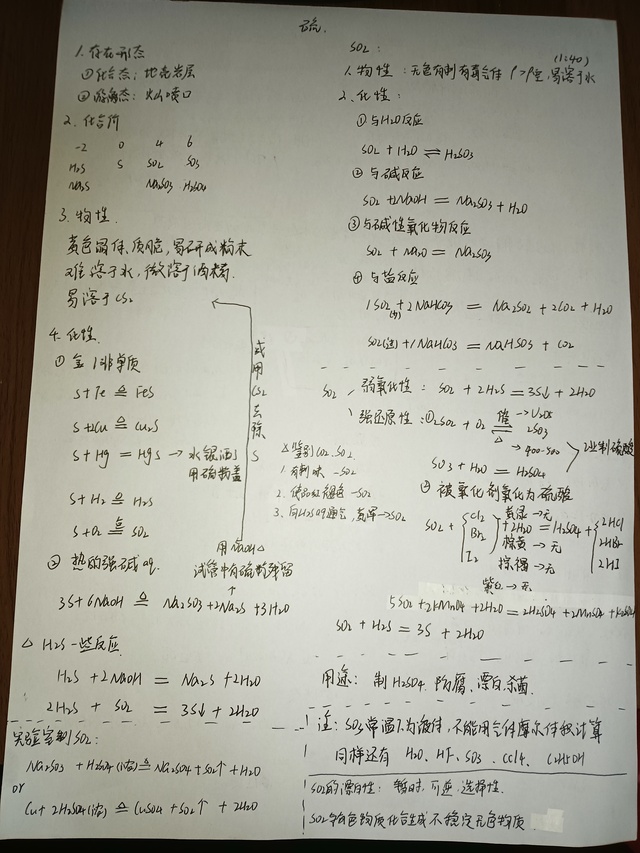 硫.
1. 存在形态
①化合态：地壳岩层
②游离态：火山喷口
2. 化合价
-2 0 4 6
H2S S SO2 SO3
Na2S Na2SO3 H2SO4
3. 物性.
黄色固体、质脆，易研成粉末
难溶于水，微溶于酒精.
易溶于CS2
4. 化性.
① 金/非单质
S+Fe ≜ FeS
S+2Cu ≜ Cu2S
S+Hg = HgS → 水银洒了
用硫粉盖
S+H2 ≜ H2S
S+O2 ≜ SO2
② 热的强碱aq.
3S+6NaOH ≜ Na2SO3+2Na2S+3H2O
试管中有硫粉残留
用NaOH△
或用CS2去除S
△ H2S一些反应
H2S+2NaOH = Na2S+2H2O
2H2S + SO2 = 3S↓ + 2H2O
实验室制SO2：
Na2SO3 + H2SO4(浓) ≜ Na2SO4+SO2↑ + H2O
or
Cu+2H2SO4(浓) ≜ CuSO4+SO2↑ + 2H2O
SO2：
(1:40)
1. 物性：无色有刺有毒气体 ρ>ρ空，易溶于水
2. 化性：
① 与H2O反应
SO2 + H2O ⇌ H2SO3
② 与碱反应
SO2 +2NaOH = Na2SO3+H2O
③ 与碱性氧化物反应
SO2 + Na2O = Na2SO3
④ 与盐反应
1SO2 + 2NaHCO3 = Na2SO3 + 2CO2 + H2O
(少)
SO2(过)+1NaHCO3 = NaHSO3 + CO2
SO2 弱氧化性：SO2 + 2H2S = 3S↓ + 2H2O
强还原性：①2SO2 + O2 催⇌△ 2SO3
→V2O5
→400-500
SO3 + H2O = H2SO4
工业制硫酸
② 被氧化剂氧化为硫酸
SO2 + { Cl2 Br2 I2 +2H2O = H2SO4 + { 2HCl 2HBr 2HI
黄绿→无
棕黄→无
棕褐→无
紫红→无
5SO2+2KMnO4+2H2O=2H2SO4+2MnSO4+K2SO4
SO2 + H2S = 3S + 2H2O
※鉴别CO2.SO2
1. 有刺味 -SO2
2. 使品红褪色-SO2
3. 向H2S aq通气，黄浑→SO2
用途：制H2SO4. 防腐、漂白.杀菌.
注：SO3常温下为液体，不能用气体摩尔体积计算
同样还有 H2O、HF、SO3、CCl4、C2H5OH
SO2的漂白性：暂时、可逆、选择性.
SO2与有色物质化合生成不稳定无色物质